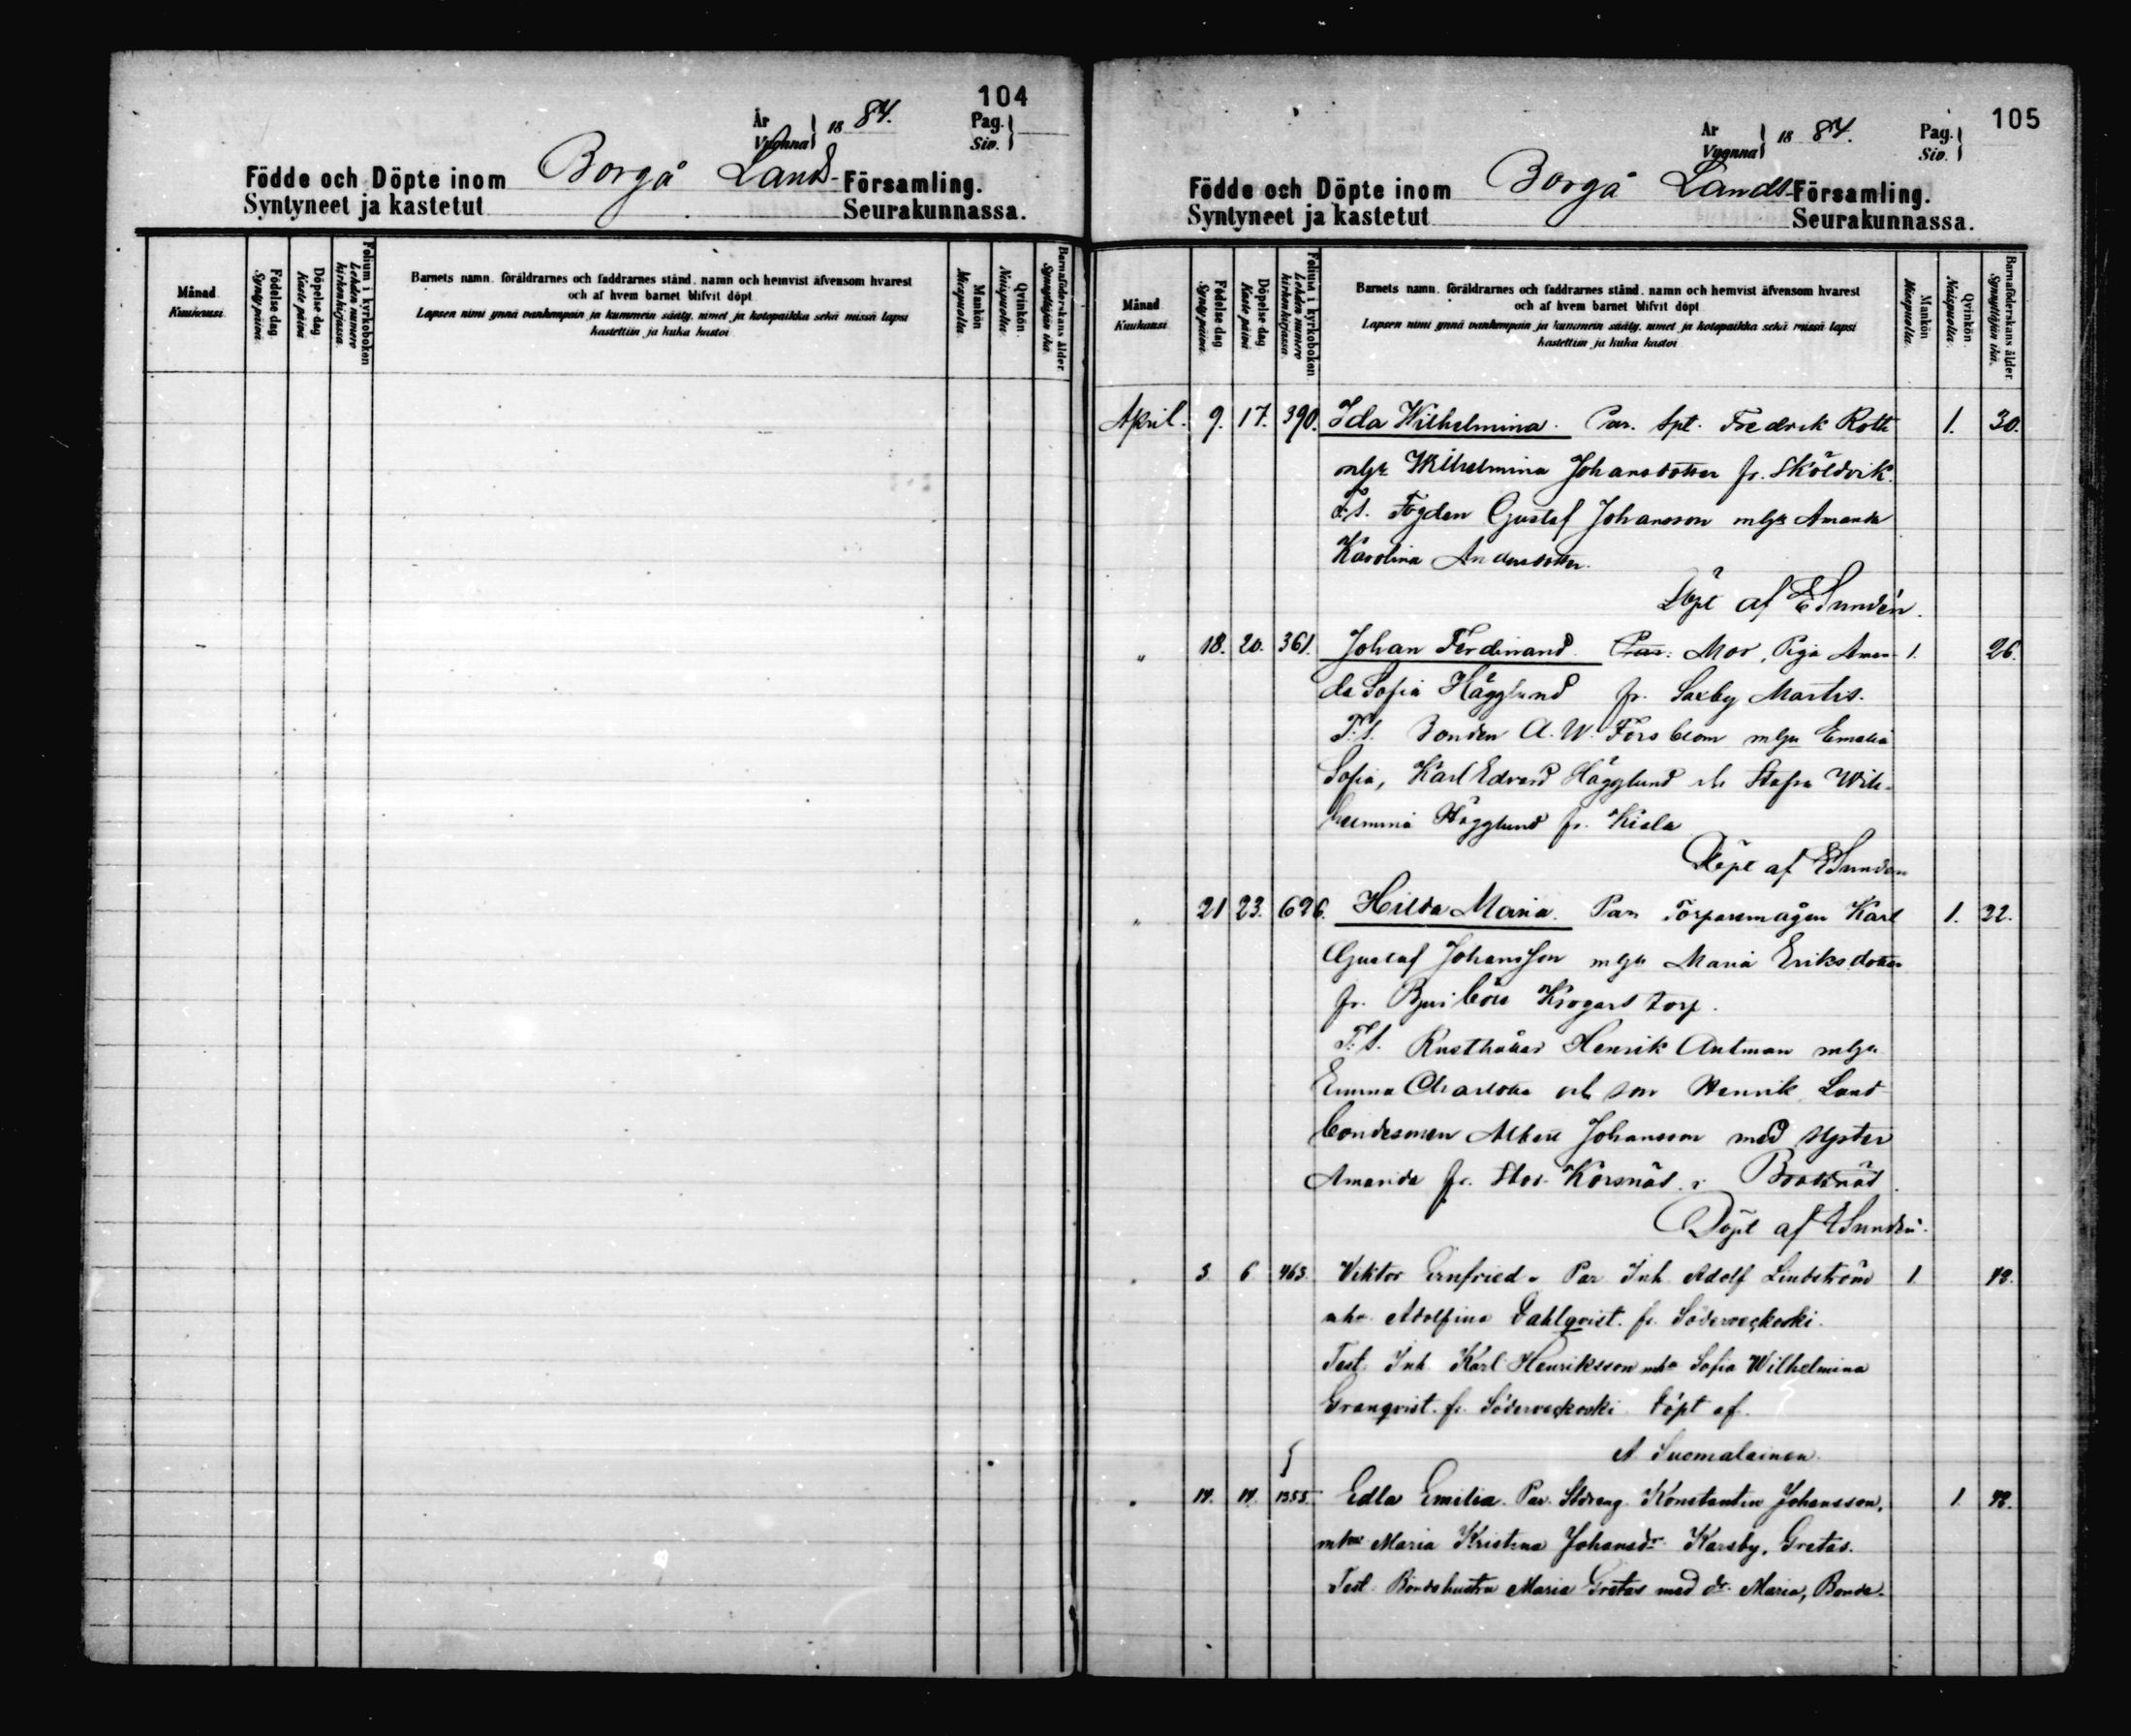 104
År
Vuonna
18 84.
Pag.
Siv.
Födde och Döpte inom Borgå Lands- Församling.
Syntyneet ja kastetut Seurakunnassa.
Månad
Kuukausi
Födelse dag
Synty päivä
Döpelse dag
Kaste päivä
Folium i kyrkoboken
Lehden numero kirkonkirjassa.
Barnets namn, föräldrarnes och faddrarnes stånd, namn och hemvist äfvensom hvarest
och af hvem barnet blifvit döpt
Lapsen nimi ynnä vanhempain ja kummein sääty, nimet ja kotopaikka sekä missä lapsi
kastettiin ja kuka kastoi
Mankön
Miespuolia.
Qvinkön.
Naispuolia.
Barnaföderskans ålder.
Synnyttäjän ikä.
105
År
Vuonna
18 84.
Pag.
Siv.
Födde och Döpte inom Borgå Lands- Församling.
Syntyneet ja kastetut Seurakunnassa.
Månad
Kuukausi
Födelse dag
Synty päivä
Döpelse dag
Kaste päivä
Folium i kyrkoboken
Lehden numero kirkonkirjassa.
Barnets namn, föräldrarnes och faddrarnes stånd, namn och hemvist äfvensom hvarest
och af hvem barnet blifvit döpt
Lapsen nimi ynnä vanhempain ja kummein sääty, nimet ja kotopaikka sekä missä lapsi
kastettiin ja kuka kastoi
Mankön
Miespuolia.
Qvinkön.
Naispuolia.
Barnaföderskans ålder.
Synnyttäjän ikä.
April. 9. 17. 390. Ida Wilhelmina. Par. Spt. Fredrik Roth 1. 30.
Wilhelmina Johansdotter fr. Sköldvik.
F.S. Fogden Gustaf Johansson Amanda
Karolina Andersdotter.
Döpt af E Sundén.
" 18. 20. 361. Johan Ferdinand. Par. Mor, Piga Aman- 1. 26.
da Sofia Hägglund fr. Saxby Martis.
F.S. Bonden A. W. Forsblom Emelia
Sofia, Karl Edvard Hägglund Wil-
helmina Hägglund fr. Kiala
Döpt af E Sunden
" 21 23. 626. Hilda Maria. Par Torparemågen Karl 1. 22.
Gustaf Johansson Maria Eriksdotter
fr. Krogars torp.
F.S. Rusthållar Henrik Antman
Emma Charlotta och son Henrik, Land-
bondesonen Albert Johansson med syster
Amanda fr. Stor Korsnäs.
Döpt af E Sundén.
" 3. 6. 463. Viktor Ernfried. Par Inh. Adolf Lindström 1. 42.
Adolfina Dahlqvist. fr. Söderveckoski.
Test. Inh. Karl Henriksson Sofia Wilhelmina
Granqvist. fr. Söderveckoski Döpt af
A Suomalainen.
" 14. 14. 1355. Edla Emilia. Par. Konstantin Johansson, 1. 42.
Maria Kristina Johansdr Karsby, Gretas.
Test. Bondehustru Maria Gretas med dr Maria, Bonde-